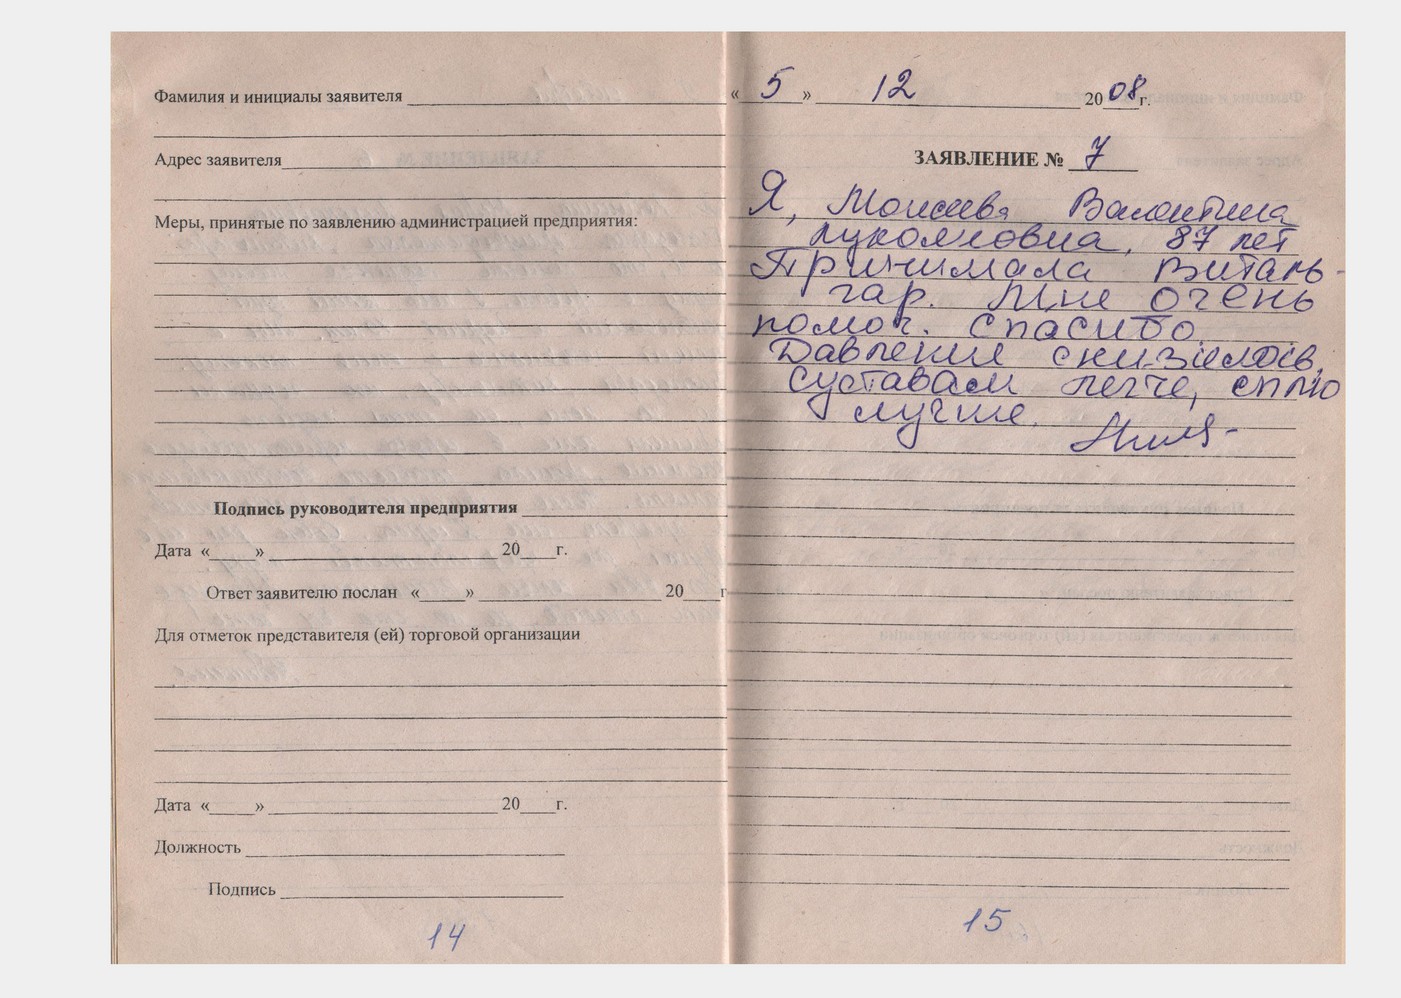 Фамилия и инициалы заявителя
Адрес заявителя
Меры, принятые по заявлению администрацией предприятия:
Подпись руководителя предприятия
Дата « » 20 г.
Ответ заявителю послан « » 20 г
Для отметок представителя (ей) торговой организации
Дата « » 20 г.
Должность
Подпись
14
« 5 » 12 20 08 г.
ЗАЯВЛЕНИЕ № 7
Я, Моисеева Валентина
87 лет
Принимала Виталь-
гар. Мне очень
помог. Спасибо.
Давление снизилось,
суставам легче, сплю
лучше.
15